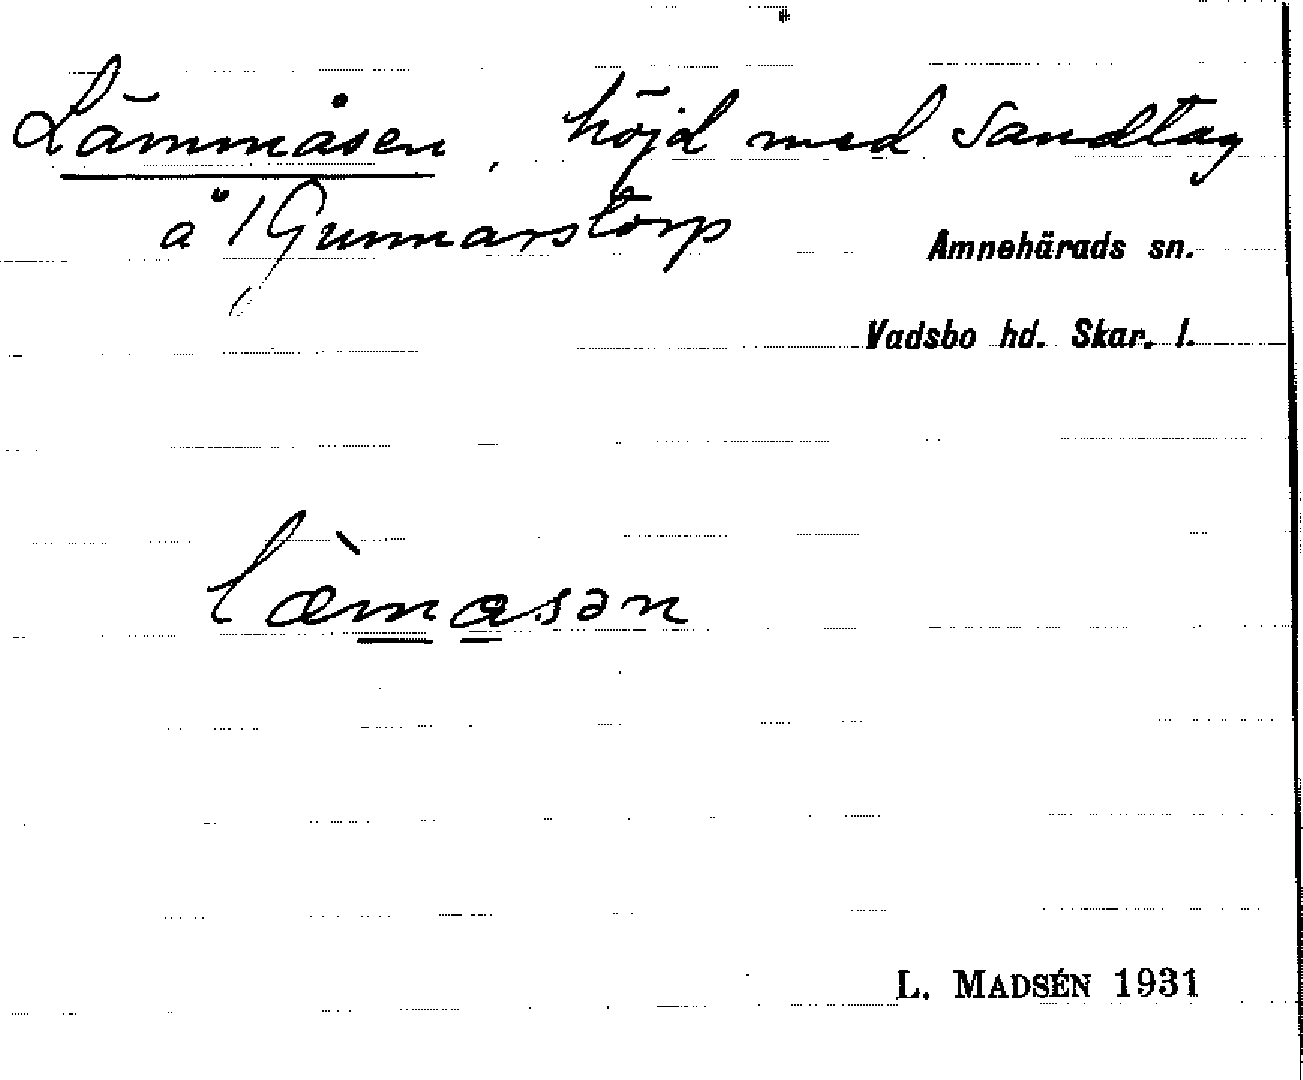 Lämmåsen, höjd med Sandtag
å / Gunnarstorp
Amnehärads sn.
Vadsbo hd. Skar. l.
l̀æmasən
L. MADSÉN 1931